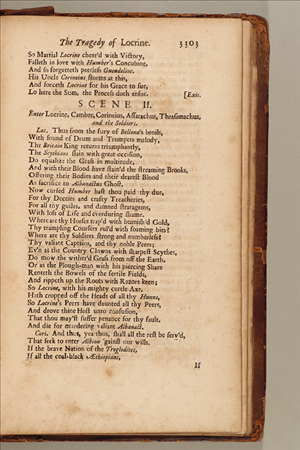 The Tragedy of Locrine. 3303
So Martial Locrine cheer'd with Victory,
Falleth in love with Humber's Concubine,
And so forgetteth peerless Guendoline.
His Uncle Corineius storms at this,
And forceth Locrine for his Grace to sue,
Lo here the Sum, the Process doth ensue. [Exit.
SCENE II.
Enter Locrine, Camber, Corineius, Assarachus, Thrasimachus,
and the Soldiers.
Loc. Thus from the fury of Bellona's broils,
With sound of Drum and Trumpets melody,
The Britain King returns triumphantly,
The Scythians slain with great occision,
Do equalize the Grass in multitude,
And with their Blood have stain'd the streaming Brooks,
Offering their Bodies and their dearest Blood
As sacrifice to Albanactus Ghost.
Now cursed Humber hast thou paid thy due,
For thy Deceits and crafty Treacheries,
For all thy guiles, and damned stratagems,
With loss of Life and everduring shame.
Where are thy Horses trap'd with burnish'd Gold,
Thy trampling Coursers rul'd with foaming bits?
Where are thy Soldiers strong and numberless?
Thy valiant Captains, and thy noble Peers;
Ev'n as the Country Clowns with sharpest Scythes,
Do mow the wither'd Grass from off the Earth,
Or as the Plough-man with his piercing Share
Renteth the Bowels of the fertile Fields,
And rippeth up the Roots with Razors keen;
So Locrine, with his mighty curtle Axe,
Hath cropped off the Heads of all thy Hunns,
So Locrine's Peers have daunted all thy Peers,
And drove thine Host unto confusion,
That thou may'st suffer penance for thy fault,
And die for murdering valiant Albanact.
Cori. And thus, yea thus, shall all the rest be serv'd,
That seek to enter Albion 'gainst our wills.
If the brave Nation of the Troglodites,
If all the coal-black Æthiopians,
If